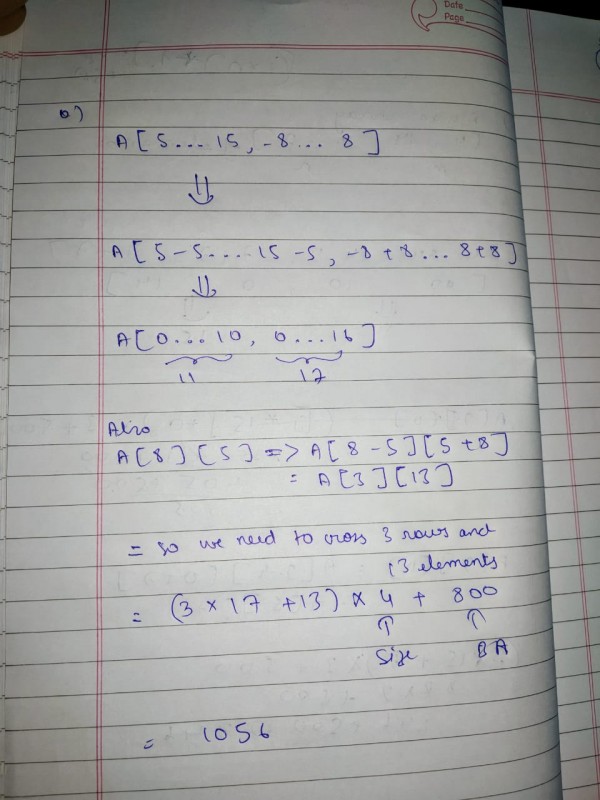 Date
Page
a)
A[5...15, -8... 8]
⇓
A[5-5....15-5, -8+8...8+8]
⇓
A[0...10, 0...16]
11 17
Also
A[8][5] => A[8-5][5+8]
= A[3][13]
= so we need to cross 3 rows and
13 elements
= (3 × 17 +13) × 4 + 800
↑ ↑
Size BA
= 1056